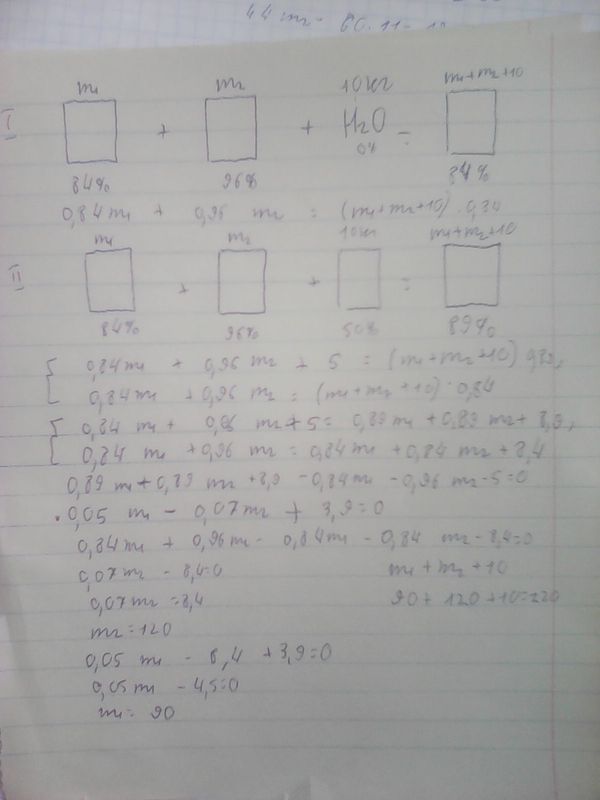 44 m2 - 60.11-
I
m1 m2 10кг m1+m2+10
+ + H2O =
84% 96% 0% 84%
0,84m1 + 0,96 m2 = (m1+m2+10)·0,84
II
m1 m2 10кг m1+m2+10
+ + =
84% 96% 50% 89%
0,84m1 + 0,96 m2 + 5 = (m1+m2+10) 0,89,
0,84m1 + 0,96 m2 = (m1+m2+10)·0,84
0,84 m1 + 0,96 m2 + 5 = 0,89 m1 + 0,89 m2 + 8,9,
0,84 m1 + 0,96 m2 = 0,84m1 + 0,84 m2 + 8,4
0,89 m1 + 0,89 m2 + 8,9 - 0,84m1 - 0,96 m2 - 5 = 0
0,05 m1 - 0,07m2 + 3,9 = 0
0,84m1 + 0,96m2 - 0,84m1 - 0,84 m2 - 8,4=0
0,07m2 - 8,4=0 m1+m2+10
0,07m2 = 8,4 90+120+10=220
m2=120
0,05 m1 - 8,4 + 3,9=0
0,05m1 - 4,5=0
m1= 90